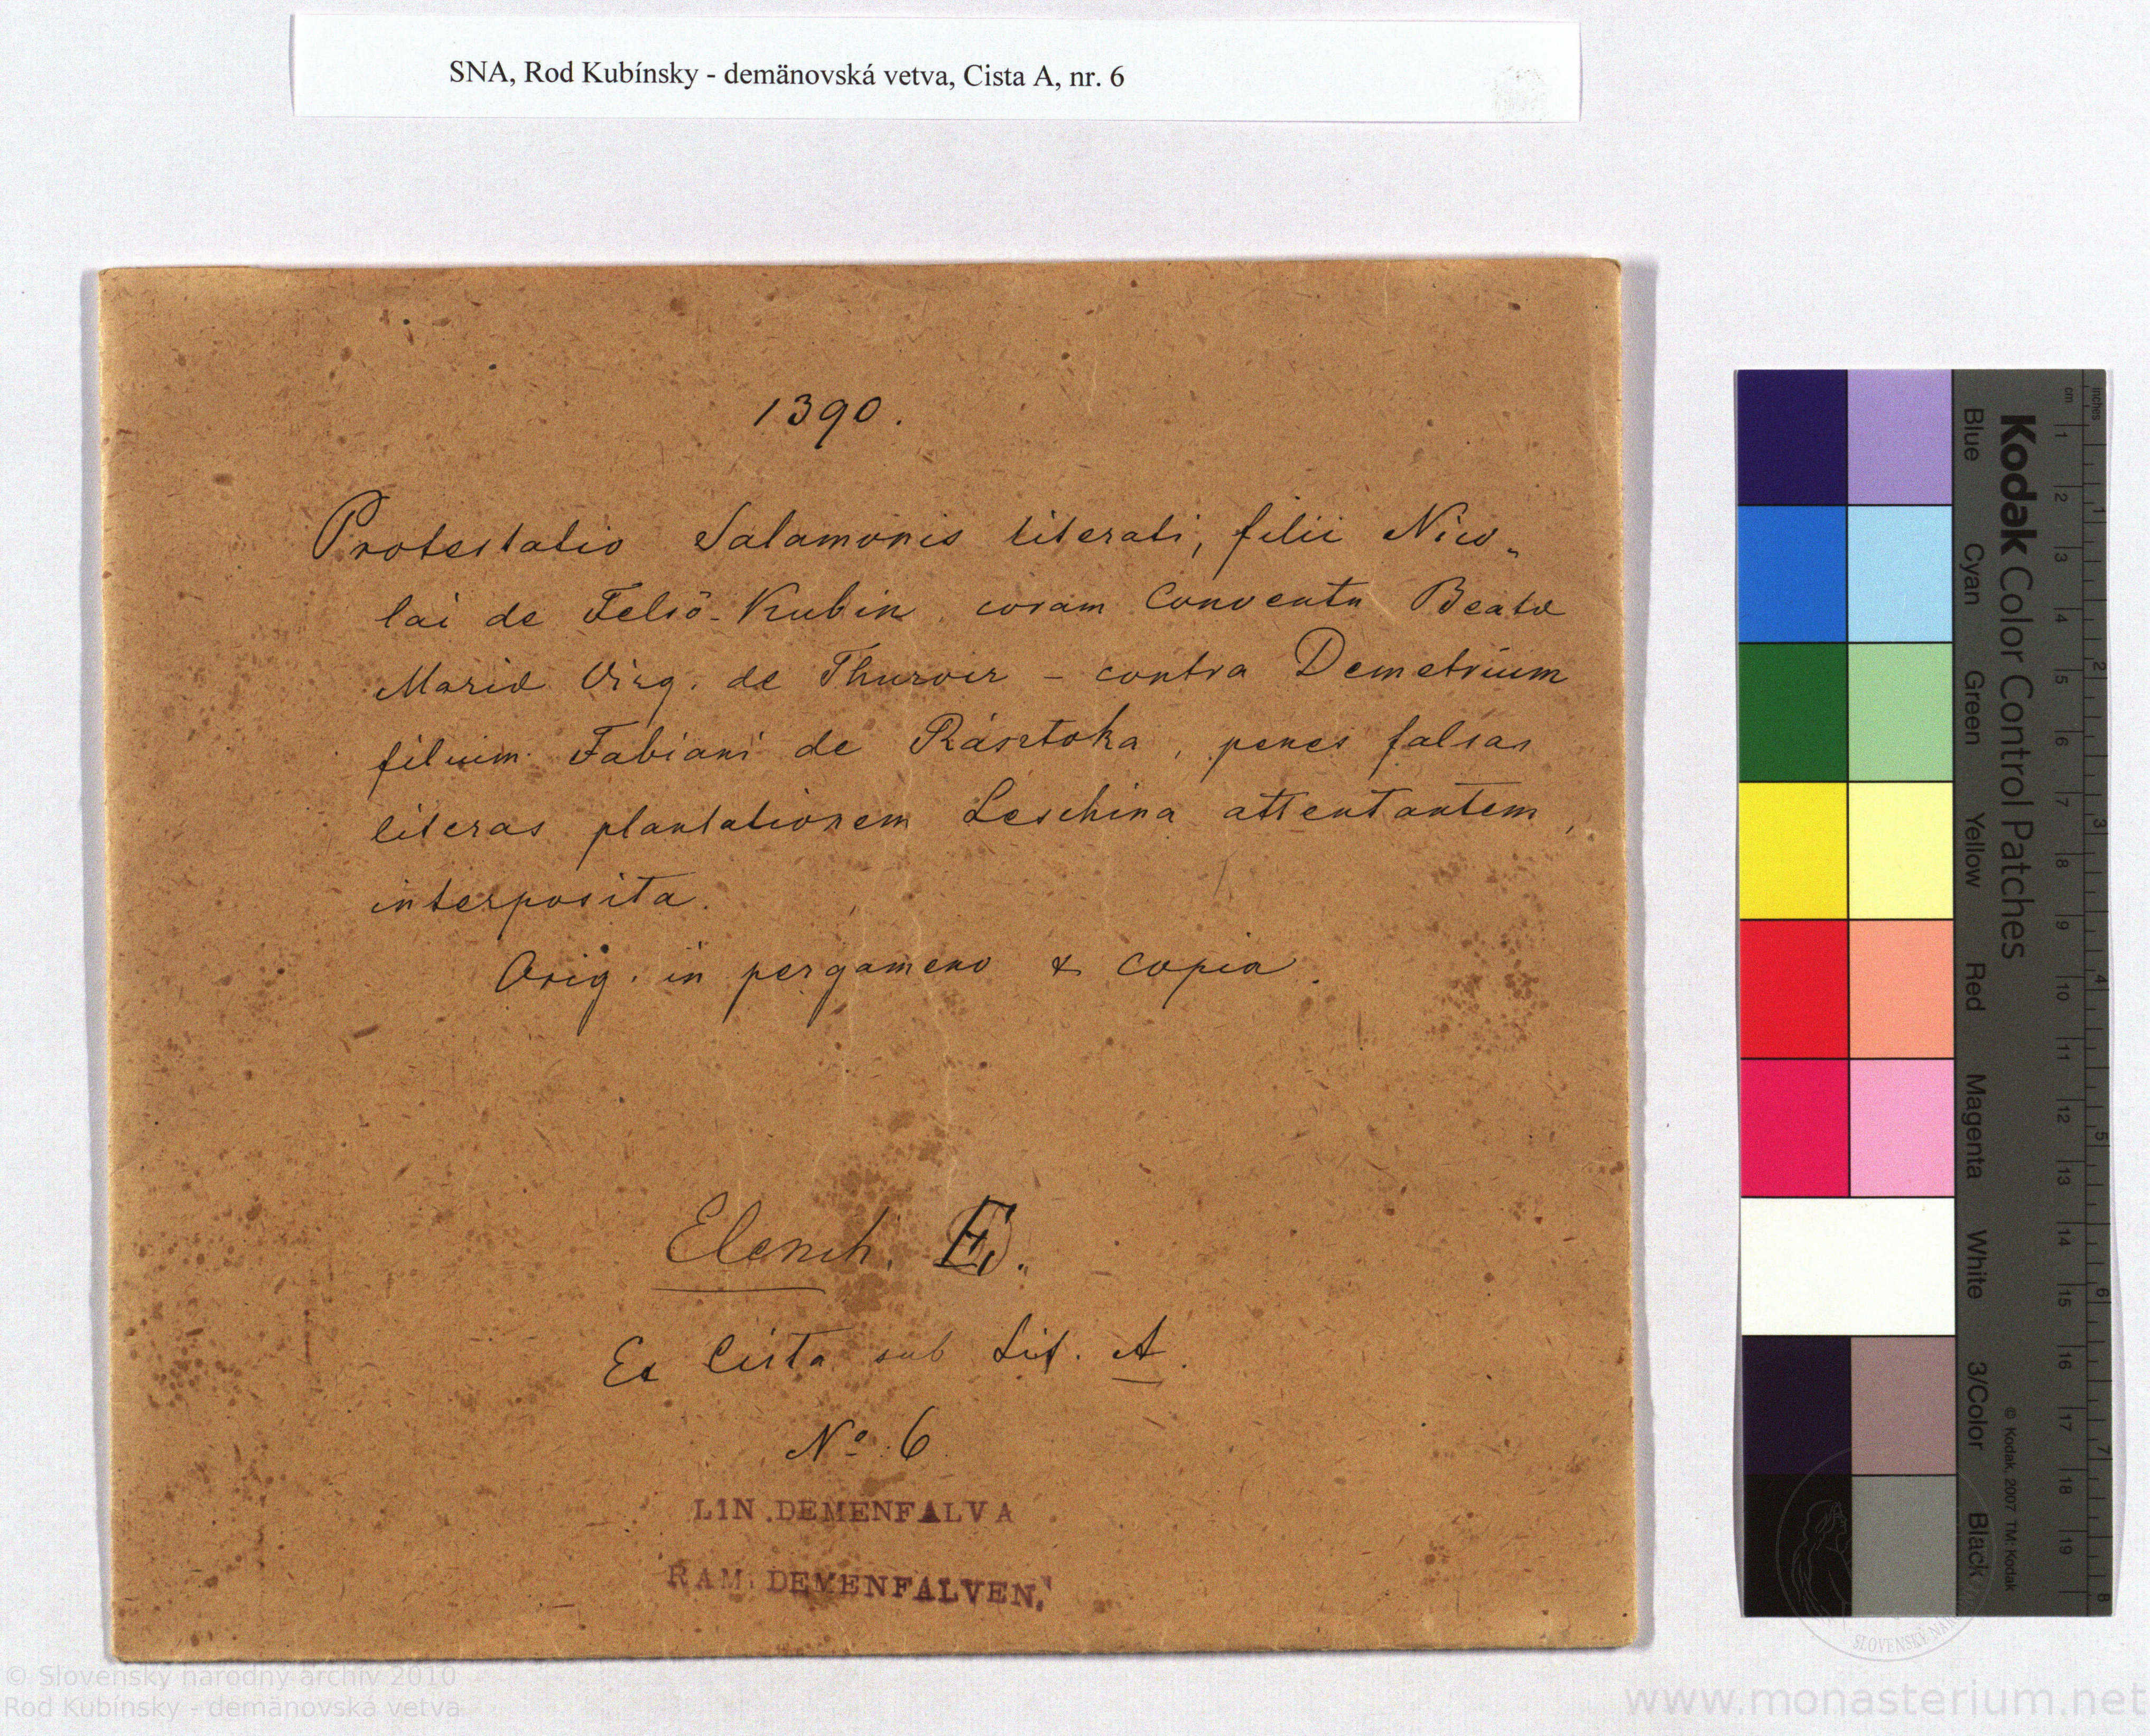 SNA, Rod Kubínsky - demänovská vetva, Cista A, nr. 6
1390.
Protestatio Salamonis literati, filii Nico-
lai de Felsö-Kubin coram Conventu Beatæ
Mariæ Virg. de Thurocz - contra Demetrium
filium Fabiani de Rásztoka, penes falsas
literas plantationem Leschina attentantem,
interposita.
Orig. in pergameno & copia.
Elench. E.
Ex Cista sub Lit. A.
Nº 6
LIN.DEMENFALVA
RAM. DEMENFALVEN.
Kodak Color Control Patches
Blue Cyan Green Yellow Red Magenta White 3/Color Black
© Kodak, 2007 TM: Kodak
cm 1 2 3 4 5 6 7 8 9 10 11 12 13 14 15 16 17 18 19
inches 1 2 3 4 5 6 7 8
SLOVENSKÝ
© Slovenský národný archív 2010
Rod Kubínsky - demänovská vetva
www.monasterium.net